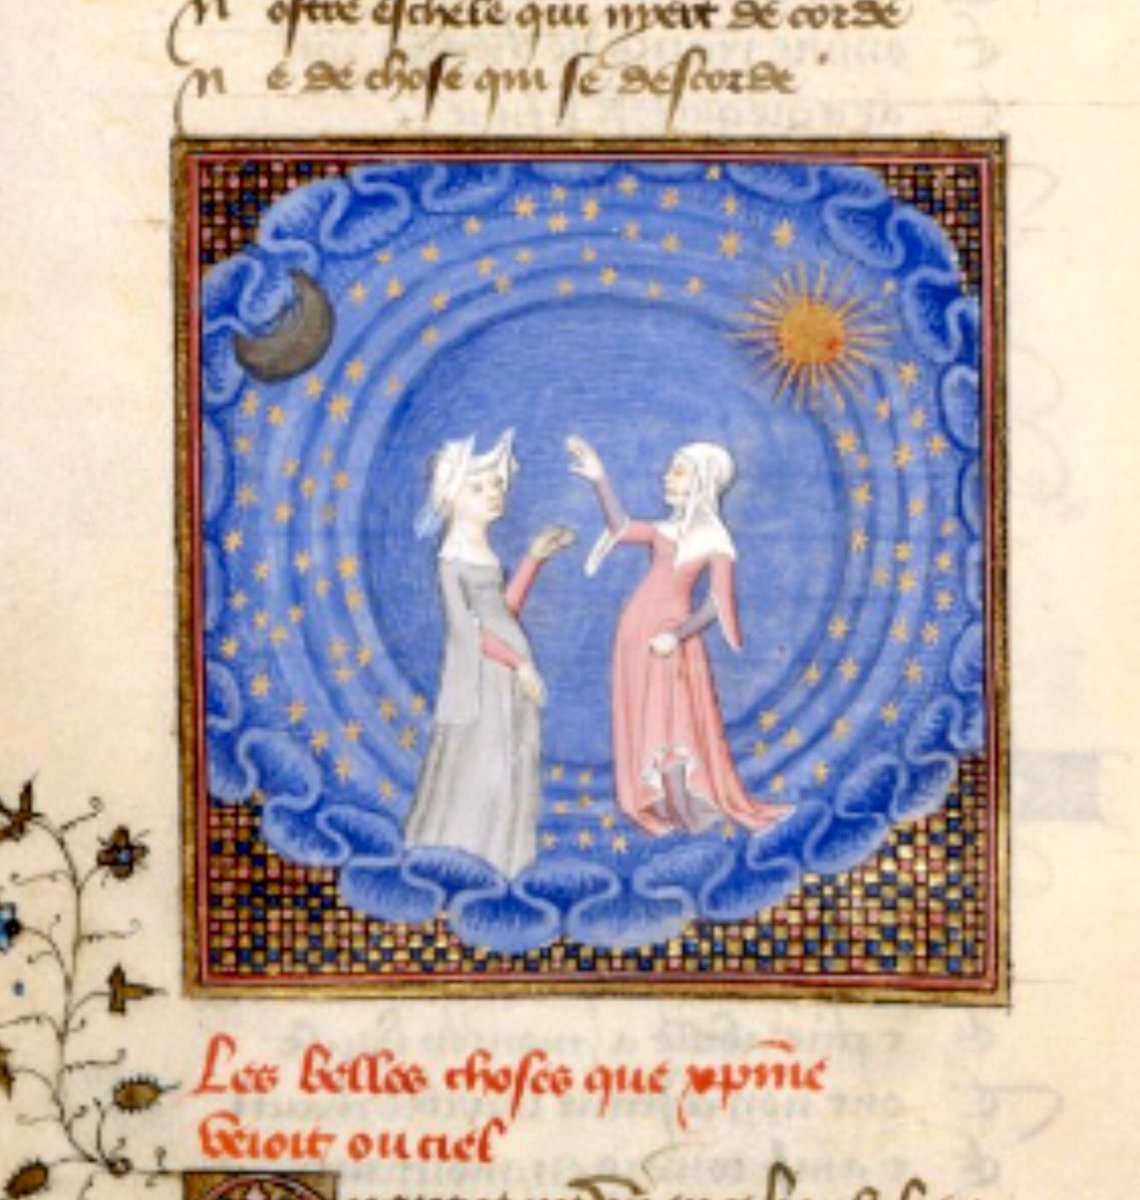 N ostre eschele qui nyert de corde
N e de chose qui se descorde
Les belles choses que xp̄ine
veioit ou ciel